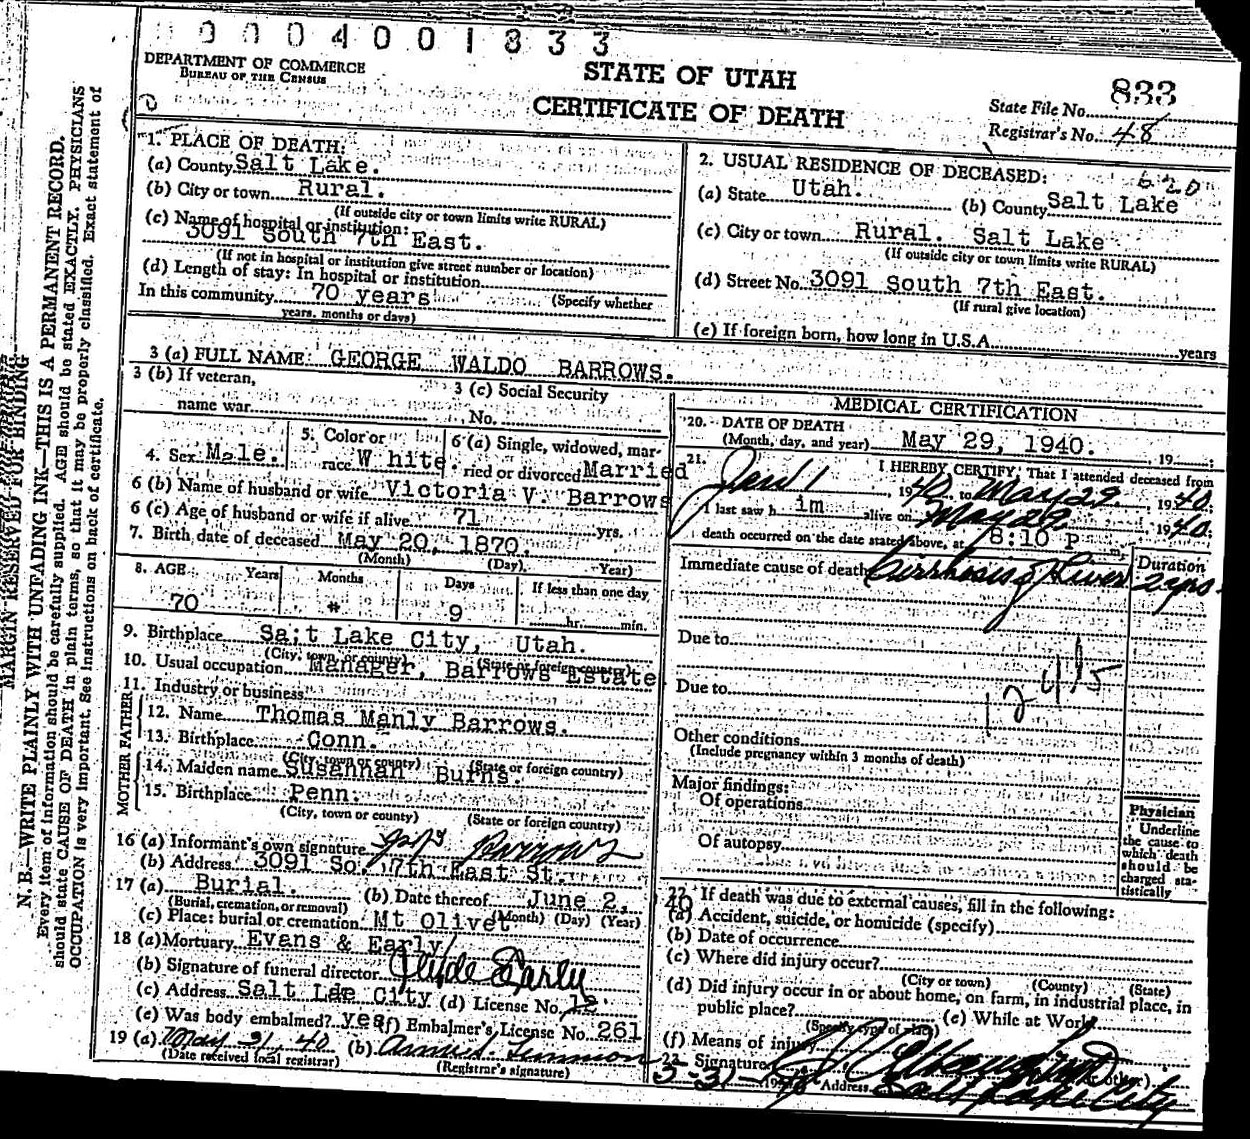 0004001833
DEPARTMENT OF COMMERCE
BUREAU OF THE CENSUS
STATE OF UTAH
CERTIFICATE OF DEATH
State File No. 833
Registrar's No. 48
MARGIN RESERVED FOR BINDING
N. B.—WRITE PLAINLY WITH UNFADING INK—THIS IS A PERMANENT RECORD.
Every item of information should be carefully supplied. AGE should be stated EXACTLY. PHYSICIANS
should state CAUSE OF DEATH in plain terms, so that it may be properly classified. Exact statement of
OCCUPATION is very important. See instructions on back of certificate.
1. PLACE OF DEATH:
(a) County Salt Lake.
(b) City or town Rural.
(If outside city or town limits write RURAL)
(c) Name of hospital or institution:
3091 South 7th East.
(If not in hospital or institution give street number or location)
(d) Length of stay: In hospital or institution
In this community 70 years (Specify whether
years, months or days)
2. USUAL RESIDENCE OF DECEASED: 620
(a) State Utah. (b) County Salt Lake
(c) City or town Rural. Salt Lake
(If outside city or town limits write RURAL)
(d) Street No. 3091 South 7th East.
(If rural give location)
(e) If foreign born, how long in U.S.A. years
3 (a) FULL NAME: GEORGE WALDO BARROWS.
3 (b) If veteran,
name war
3 (c) Social Security
No.
4. Sex Male.
5. Color or
race White.
6 (a) Single, widowed, mar-
ried or divorced Married
6 (b) Name of husband or wife Victoria V. Barrows
6 (c) Age of husband or wife if alive 71 yrs.
7. Birth date of deceased May 20, 1870.
(Month) (Day) (Year)
8. AGE Years Months Days If less than one day
70 # 9 hr. min.
9. Birthplace Sa;t Lake City, Utah.
(City, town, or county) (State or foreign country)
10. Usual occupation Manager, Barrows Estate
11. Industry or business
FATHER
12. Name Thomas Manly Barrows.
13. Birthplace Conn.
(City, town or county) (State or foreign country)
MOTHER
14. Maiden name Susannah Burns.
15. Birthplace Penn.
(City, town or county) (State or foreign country)
16 (a) Informant's own signature Barrows
(b) Address 3091 So. 7th East St.
17 (a) Burial. (b) Date thereof June 2, 40
(Burial, cremation, or removal) (Month) (Day) (Year)
(c) Place: burial or cremation Mt Olivet
18 (a) Mortuary Evans & Early/
(b) Signature of funeral director Clyde Early
(c) Address Salt Lae City (d) License No. 12.
(e) Was body embalmed? yes (f) Embalmer's License No. 261
19 (a) May 31, 40 (b)
(Date received local registrar) (Registrar's signature)
MEDICAL CERTIFICATION
20. DATE OF DEATH
(Month, day, and year) May 29, 1940. 19
21. I HEREBY CERTIFY, That I attended deceased from
Jan 1, 1940, to May 29, 1940.
I last saw h im alive on May 29, 1940.
death occurred on the date stated above, at 8:10 P m.
Immediate cause of death Cirrhosis of Liver
Duration
2 yrs.
Due to
Due to
Other conditions
(Include pregnancy within 3 months of death)
Major findings:
Of operations
Of autopsy
Physician
Underline
the cause to
which death
should be
charged sta-
tistically
22. If death was due to external causes, fill in the following:
(a) Accident, suicide, or homicide (specify)
(b) Date of occurrence
(c) Where did injury occur?
(City or town) (County) (State)
(d) Did injury occur in or about home, on farm, in industrial place, in
public place? (e) While at Work
(Specify type of place)
(f) Means of injury
23. Signature or other)
Address Salt Lake City